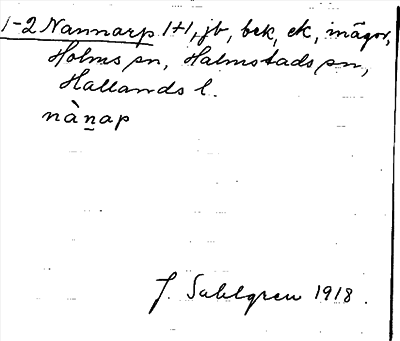 1-2 Nannarp 1+1, jb, bek, ek, inägor,
Holms sn, Halmstads sn,
Hallands l.
nàn̲ap
J. Sahlgren 1918.